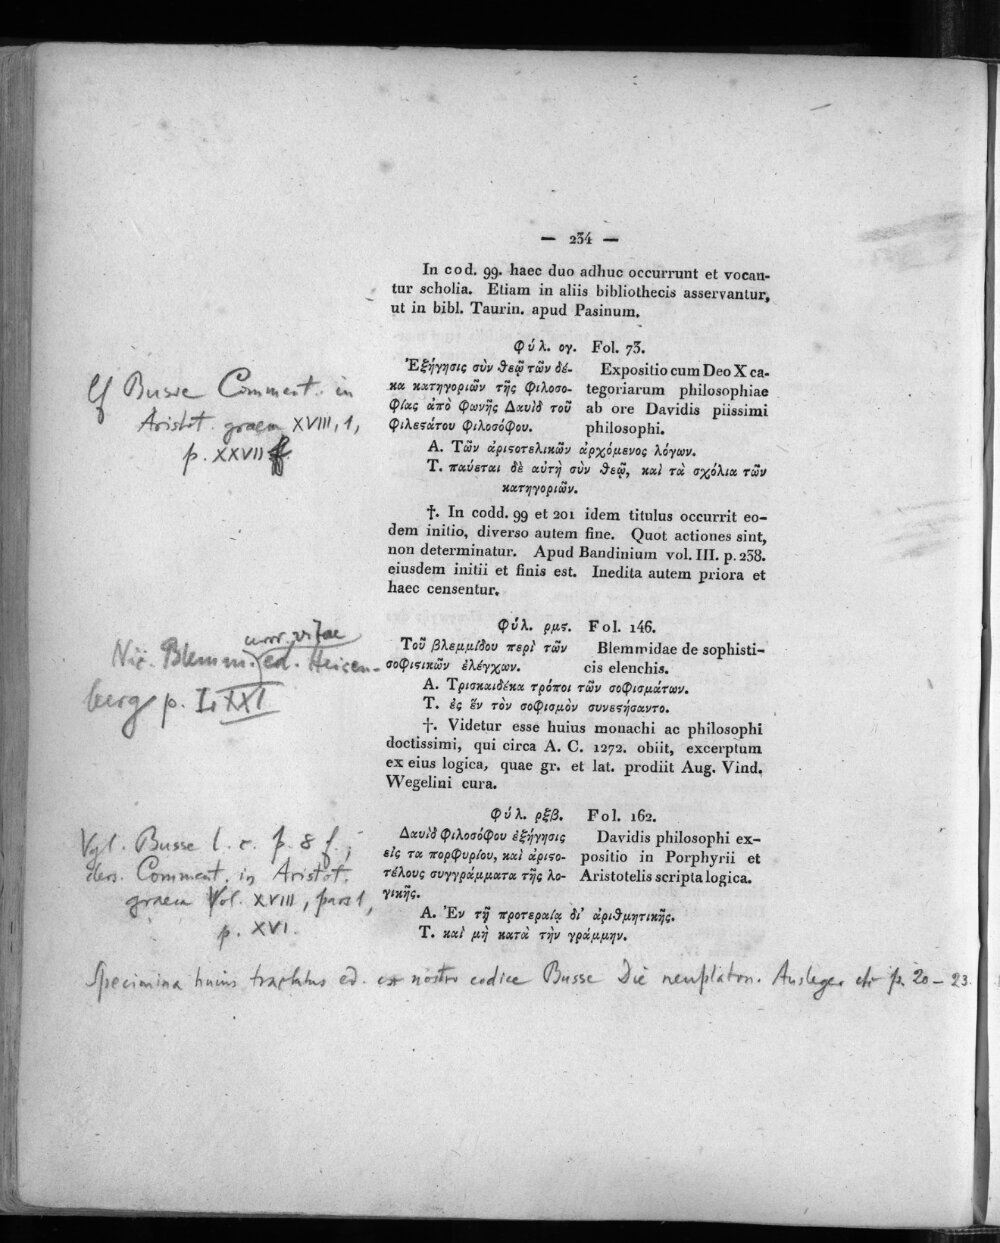 — 234 —
In cod. 99. haec duo adhuc occurrunt et vocan-
tur scholia. Etiam in aliis bibliothecis asservantur,
ut in bibl. Taurin. apud Pasinum.
Φύλ. ογ. Fol. 73.
Ἐξήγησις σὺν θεῷ τῶν δέ-
κα κατηγοριῶν τῆς φιλοσο-
φίας ἀπὸ φωνῆς Δαυὶδ τοῦ
φιλεϛάτου φιλοσόφου.
Expositio cum Deo X ca-
tegoriarum philosophiae
ab ore Davidis piissimi
philosophi.
Α. Τῶν ἀριϛοτελικῶν ἀρχόμενος λόγων.
Τ. παύεται δὲ αὐτὴ σὺν θεῷ, καὶ τὰ σχόλια τῶν
κατηγοριῶν.
Cf Busse Comment. in
Aristot. graeca XVIII, 1,
p. XXVII f
†. In codd. 99 et 201 idem titulus occurrit eo-
dem initio, diverso autem fine. Quot actiones sint,
non determinatur. Apud Bandinium vol. III. p. 238.
eiusdem initii et finis est. Inedita autem priora et
haec censentur.
Φύλ. ρμϛ. Fol. 146.
Τοῦ βλεμμίδου περὶ τῶν
σοφιϛικῶν ἐλέγχων.
Blemmidae de sophisti-
cis elenchis.
Α. Τρισκαιδέκα τρόποι τῶν σοφισμάτων.
Τ. ἐς ἓν τὸν σοφισμὸν συνεϛήσαντο.
curr. vitae
Nic. Blemm. ed. Heisen-
berg p. LXXI
†. Videtur esse huius monachi ac philosophi
doctissimi, qui circa A. C. 1272. obiit, excerptum
ex eius logica, quae gr. et lat. prodiit Aug. Vind.
Wegelini cura.
Φύλ. ρξβ. Fol. 162.
Δαυὶδ φιλοσόφου ἐξήγησις
εἰς τα πορφυρίου, καὶ ἀριϛο-
τέλους συγγράμματα τῆς λο-
γικῆς.
Davidis philosophi ex-
positio in Porphyrii et
Aristotelis scripta logica.
Α. Ἐν τῇ προτεραίᾳ δι' ἀριθμητικῆς.
Τ. καὶ μὴ κατὰ τὴν γράμμην.
Vgl. Busse l. c. p. 8 f.;
ders. Comment. in Aristot.
graeca Vol. XVIII, pars 1,
p. XVI.
Specimina huius tractatus ed. ex nostro codice Busse Die neuplaton. Ausleger etc p. 20 – 23.